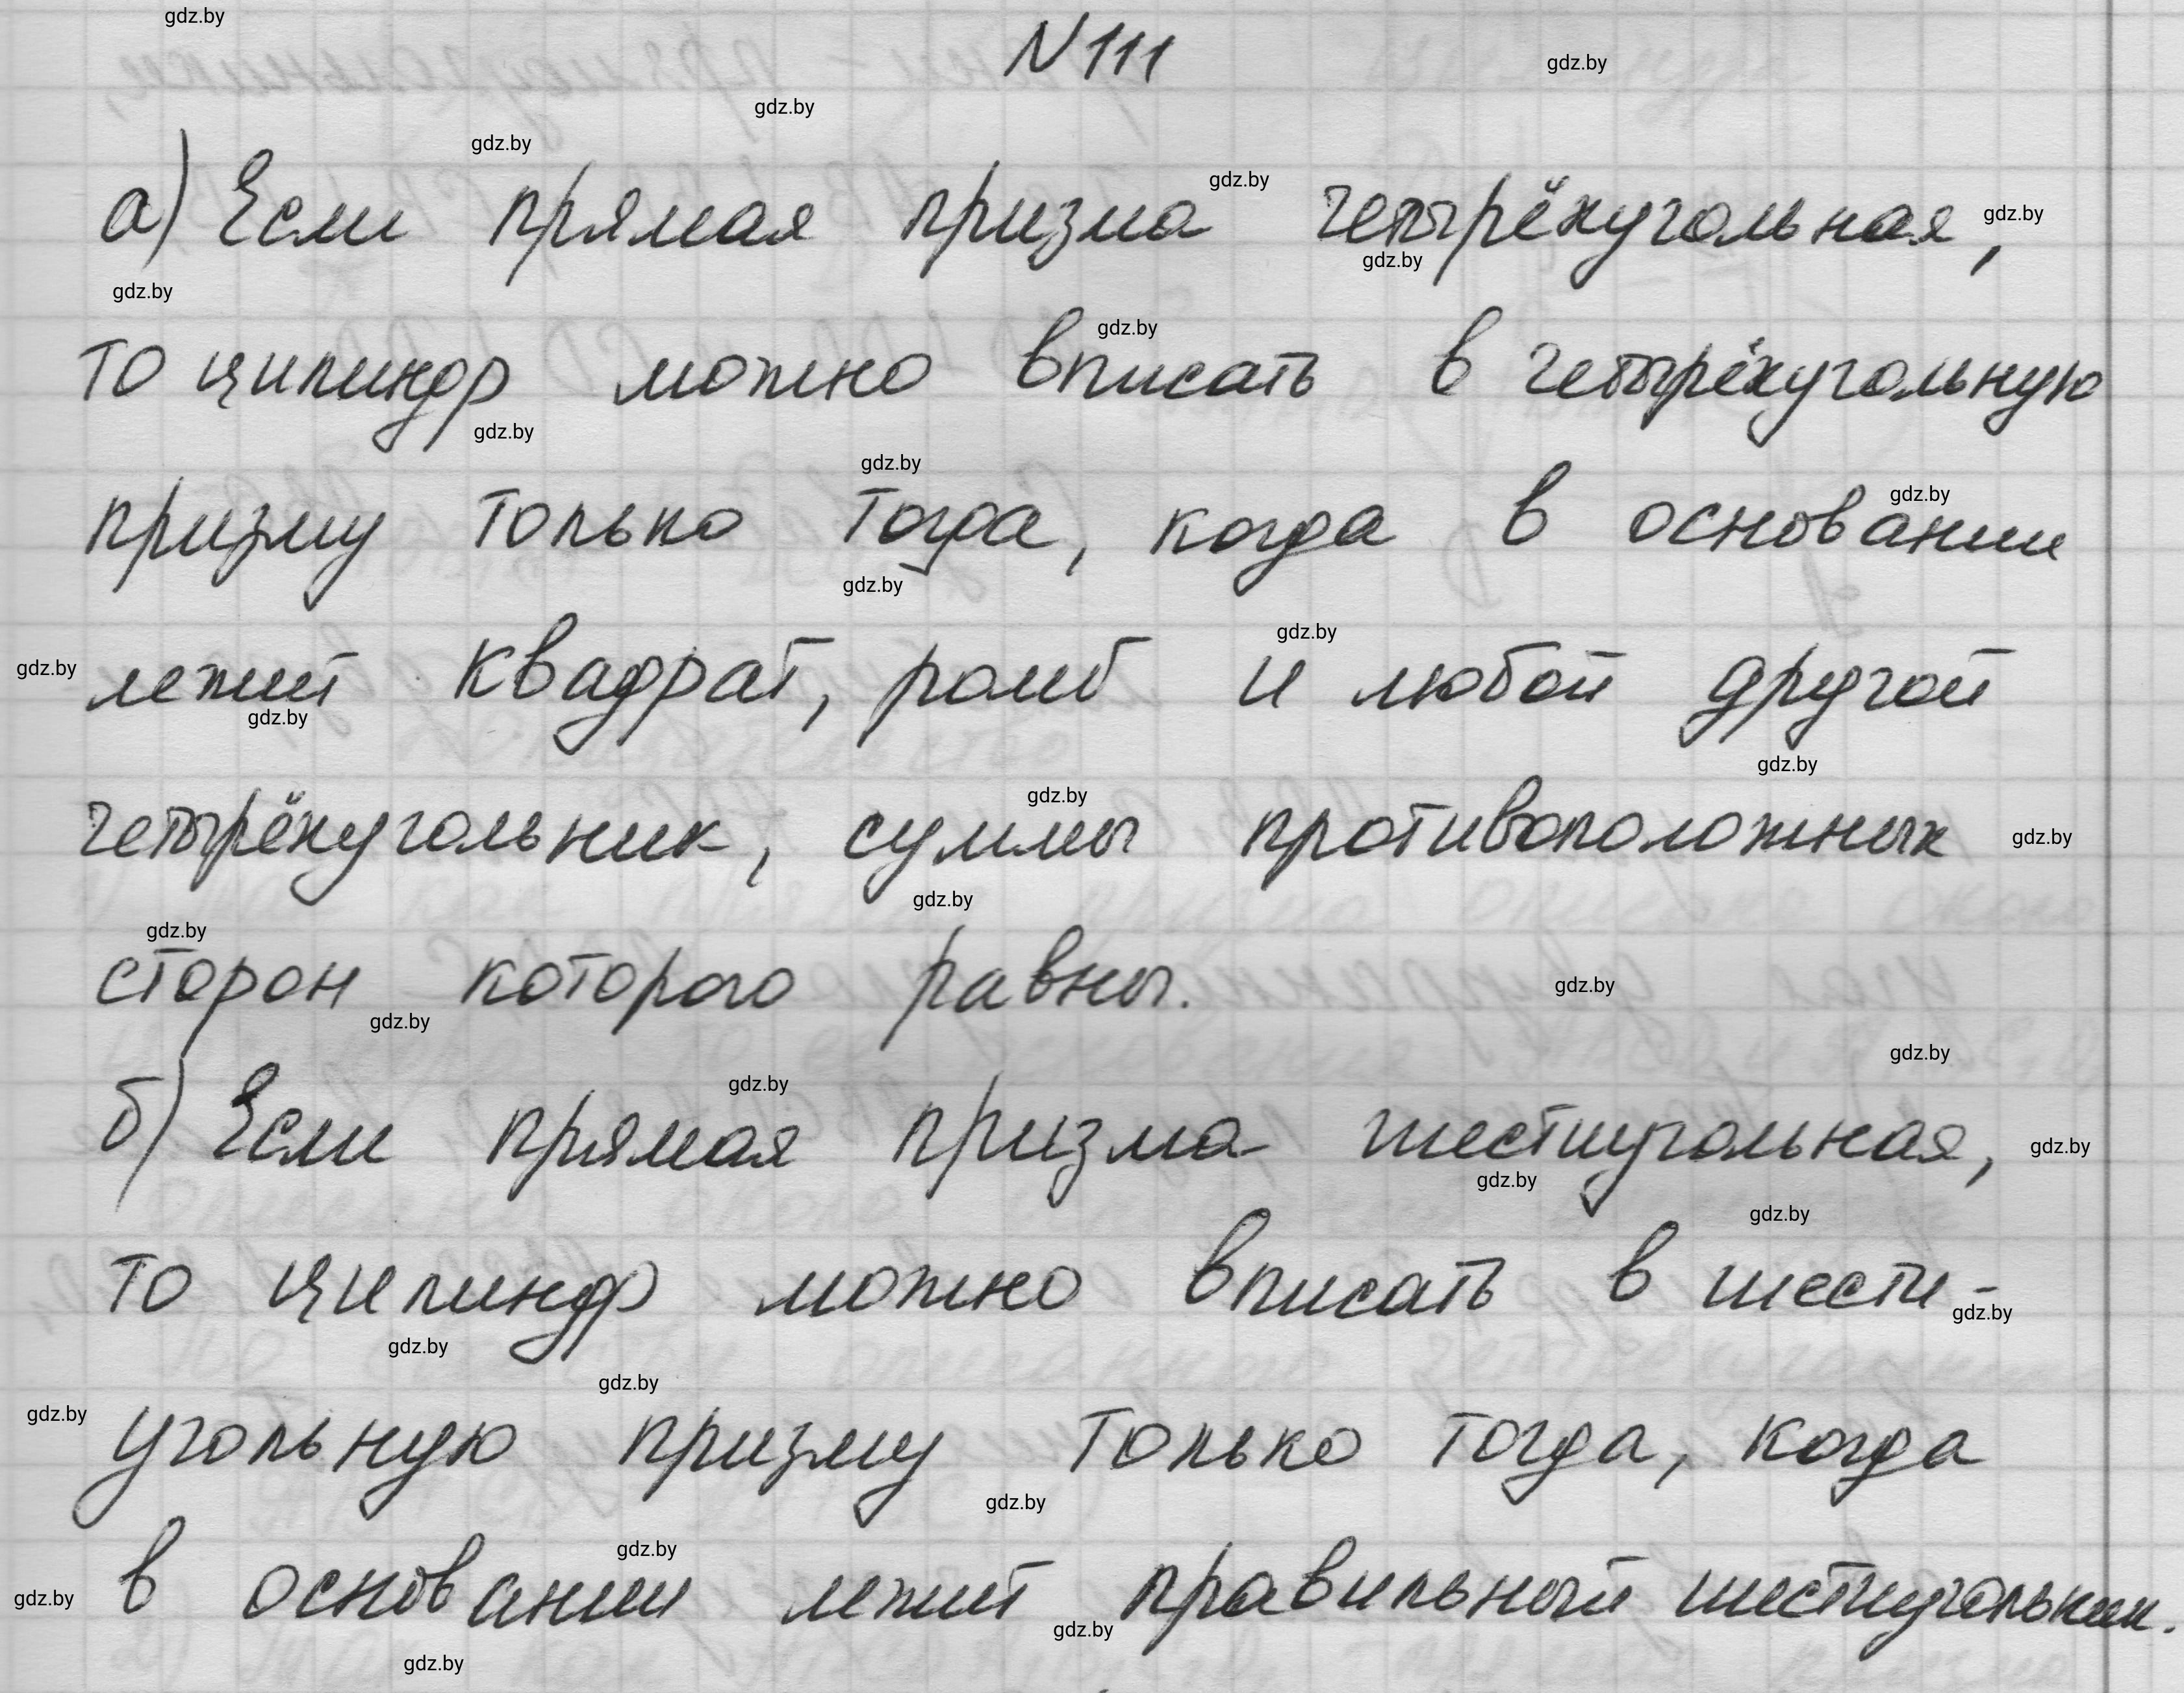 N 111
а) Если прямая призма четырёхугольная,
то цилиндр можно вписать в четырёхугольную
призму только тогда, когда в основании
лежит квадрат, ромб и любой другой
четырёхугольник, суммы противоположных
сторон которого равны.
б) Если прямая призма шестиугольная,
то цилиндр можно вписать в шести-
угольную призму только тогда, когда
в основании лежит правильный шестиугольник.
gdz.by